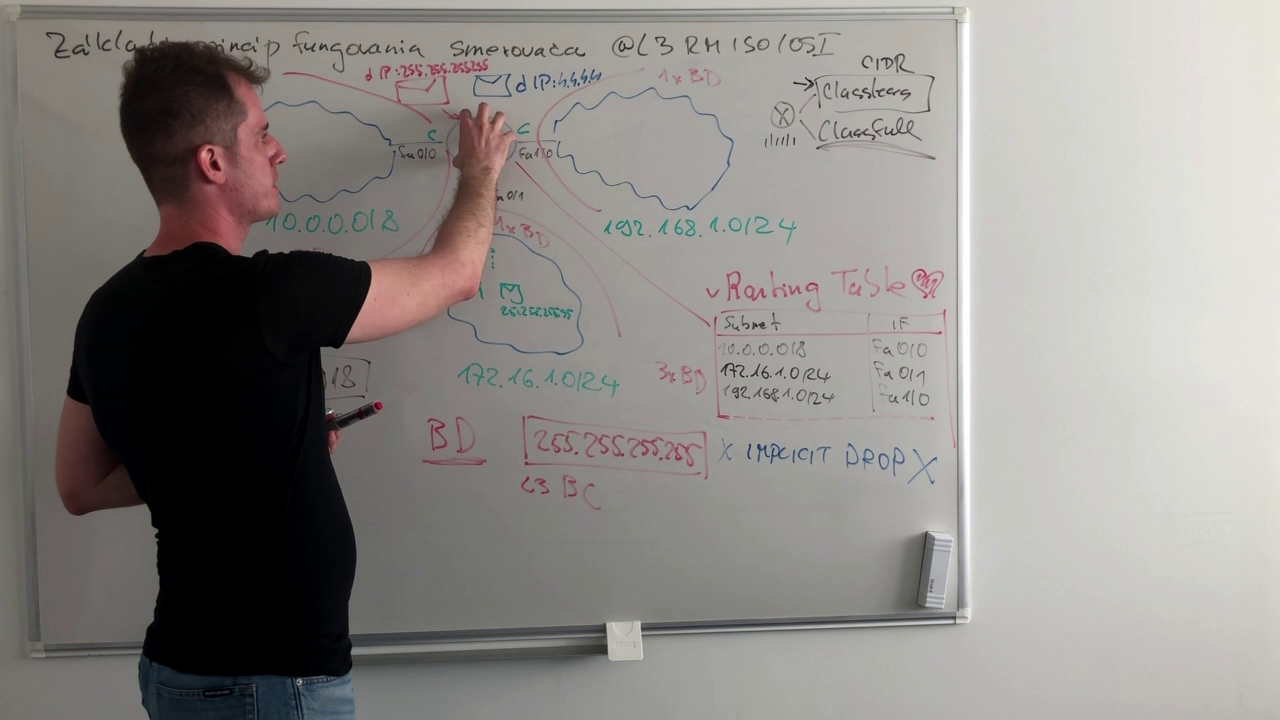 fungovania smerovača @L3 RM ISO/OSI
d IP:255.255.255.255
d IP:4.4.4.4
1x BD
CIDR
Classless
Classfull
C
Fa0/0
C
Fa1/0
10.0.0.0/8
192.168.1.0/24
1x BD
255.255.255.255
172.16.1.0/24
Routing Table
Subnet IF
10.0.0.0/8 Fa0/0
172.16.1.0/24 Fa0/1
192.168.1.0/24 Fa1/0
3x BD
BD
255.255.255.255
X IMPLICIT DROP X
L3 BC